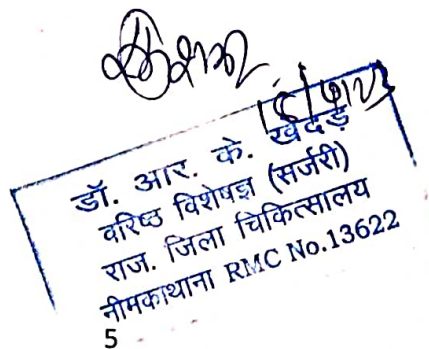 डॉ. आर. के. खेदड़
वरिष्ठ विशेषज्ञ (सर्जरी)
राज. जिला चिकित्सालय
नीमकाथाना RMC No.13622
5